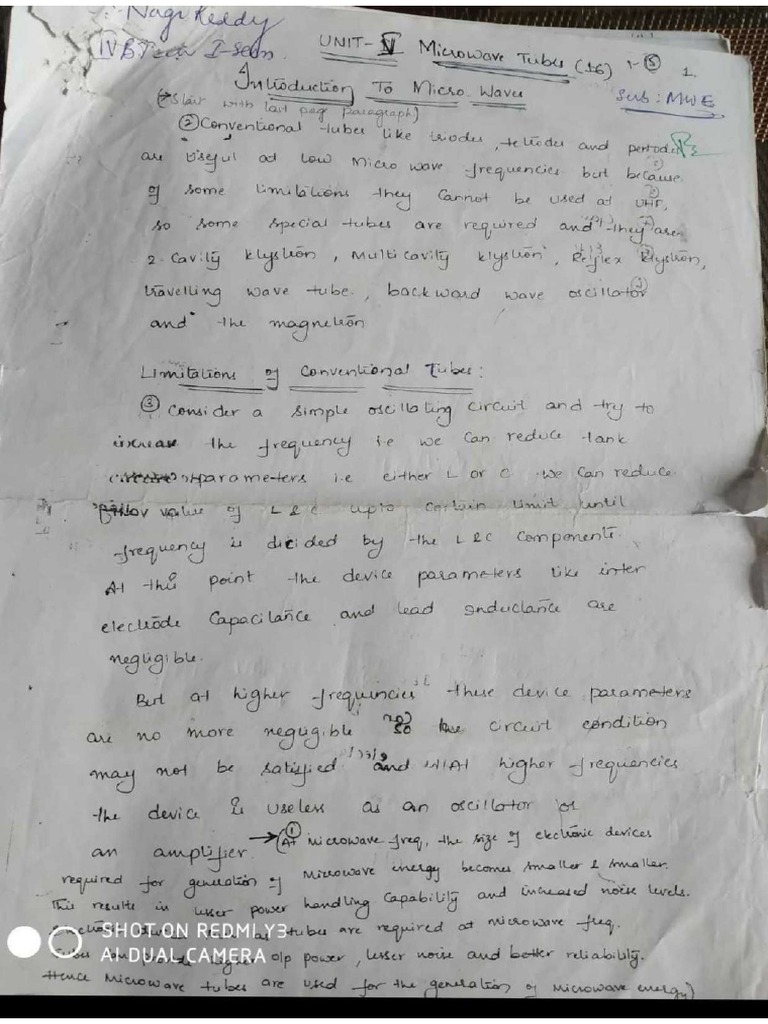 Nagi Reddy
IV B Tech I-sem
UNIT- Microwave Tubes (16) 1.
Introduction To Micro Waves
Sub: MWE
(→ Start with last page paragraph)
② Conventional tubes like triodes, tetrodes and pentodes
are useful at low Micro wave frequencies but because
of some limitations they cannot be used at UHF,
so some special tubes are required and they are
2-Cavity klystron, Multicavity klystron, Reflex klystron,
travelling wave tube, backward wave oscillator
and the magnetron
Limitations of Conventional Tubes:
③ Consider a simple oscillating circuit and try to
increase the frequency i.e we can reduce tank
parameters i.e either L or C we can reduce
value of L & C upto certain limit until
frequency is decided by the L & C components.
At this point the device parameters like inter
electrode Capacitance and lead inductance are
negligible.
But at higher frequencies these device parameters
are no more negligible so the circuit condition
may not be satisfied and At higher frequencies
the device is useless as an oscillator or
an amplifier. → ① (At microwave freq, the size of electronic devices
required for generation of Microwave energy becomes smaller & smaller.
This results in lesser power handling capability and increased noise levels.
tubes are required at microwave freq.
o/p power, lesser noise and better reliability.
Hence Microwave tubes are used for the generation of Microwave energy)
SHOT ON REDMI Y3
AI DUAL CAMERA